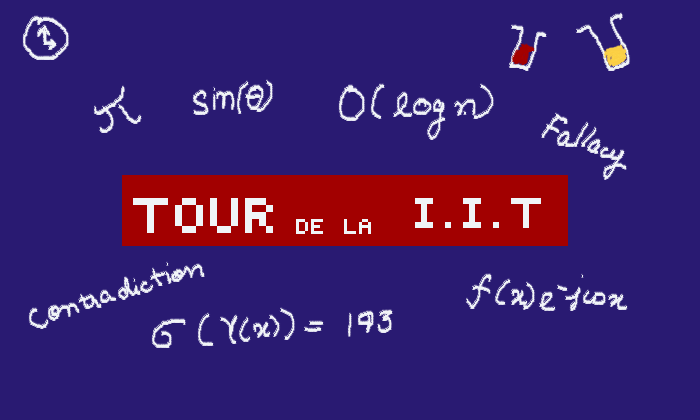 π sin(θ) O(log n) Fallacy
TOUR DE LA I.I.T
Contradiction
σ(γ(x)) = 193
f(x)e^-jωx